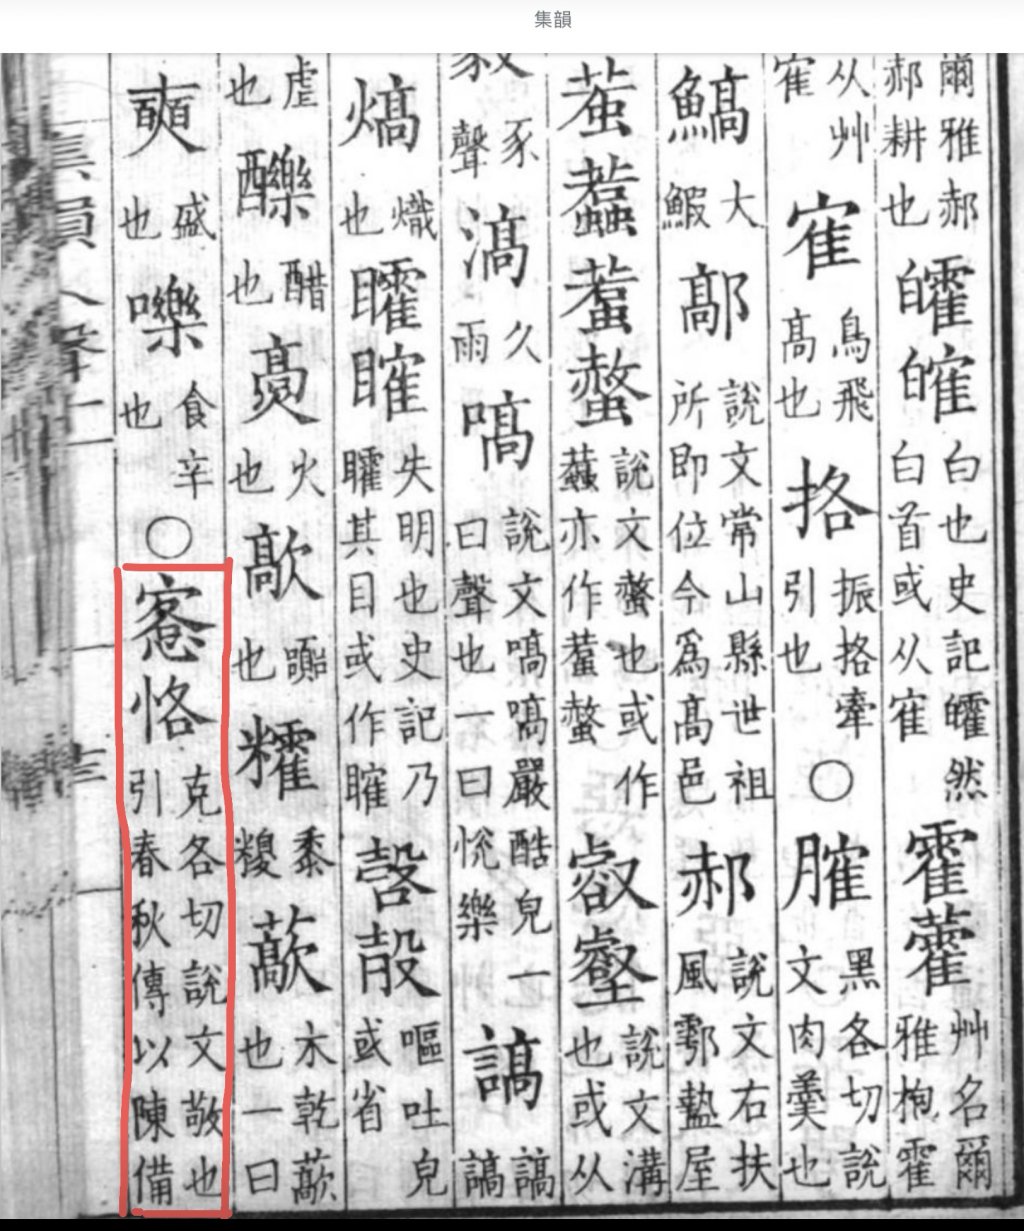 集韻
爾雅郝郝耕也皬㿥白也史記皬然白首或从寉靃藿艸名爾雅靃
从艸寉寉鳥飛高也挌振挌牽引也○黑各切說文肉羹也
鰝大鰕鄗說文常山縣世祖所即位今爲髙邑郝說文右扶風鄠盩屋
螫說文螫也或作亦作螫叡壑說文溝也或从
豕聲滈久雨嗃說文嗃嗃嚴酷皃一曰聲也一曰悅樂謞謞謞
熇熾也矐失明也史記乃矐其目或作嘔吐皃或省
虐也醋也火也歊也黍藃木乾藃也一曰
奭盛也嚛食辛也○愙恪克各切說文敬也引春秋傳以陳備
集韻入聲二